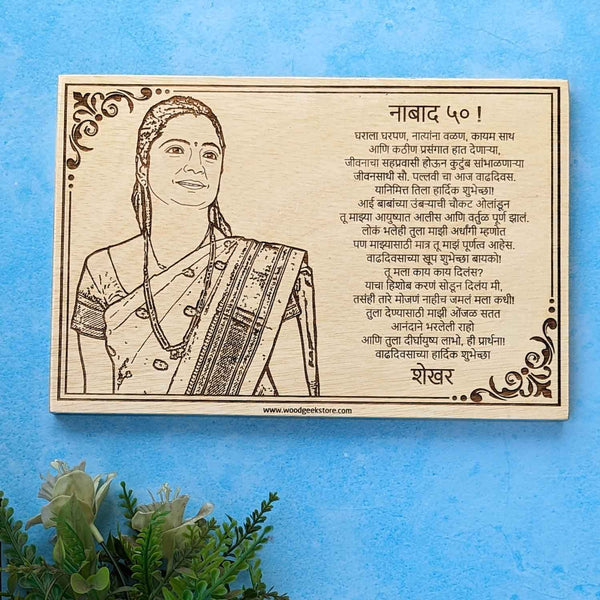 नाबाद ५० !
घराला घरपण, नात्यांना वळण, कायम साथ
आणि कठीण प्रसंगात हात देणाऱ्या,
जीवनाचा सहप्रवासी होऊन कुटुंब सांभाळणाऱ्या
जीवनसाथी सौ. पल्लवी चा आज वाढदिवस.
यानिमित्त तिला हार्दिक शुभेच्छा!
आई बाबांच्या उंबऱ्याची चौकट ओलांडून
तू माझ्या आयुष्यात आलीस आणि वर्तुळ पूर्ण झालं.
लोकं भलेही तुला माझी अर्धांगी म्हणोत
पण माझ्यासाठी मात्र तू माझं पूर्णत्व आहेस.
वाढदिवसाच्या खूप शुभेच्छा बायको!
तू मला काय काय दिलंस?
याचा हिशोब करणं सोडून दिलंय मी,
तसंही तारे मोजणं नाहीच जमलं मला कधी!
तुला देण्यासाठी माझी ओंजळ सतत
आनंदाने भरलेली राहो
आणि तुला दीर्घायुष्य लाभो, ही प्रार्थना!
वाढदिवसाच्या हार्दिक शुभेच्छा
शेखर
www.woodgeekstore.com